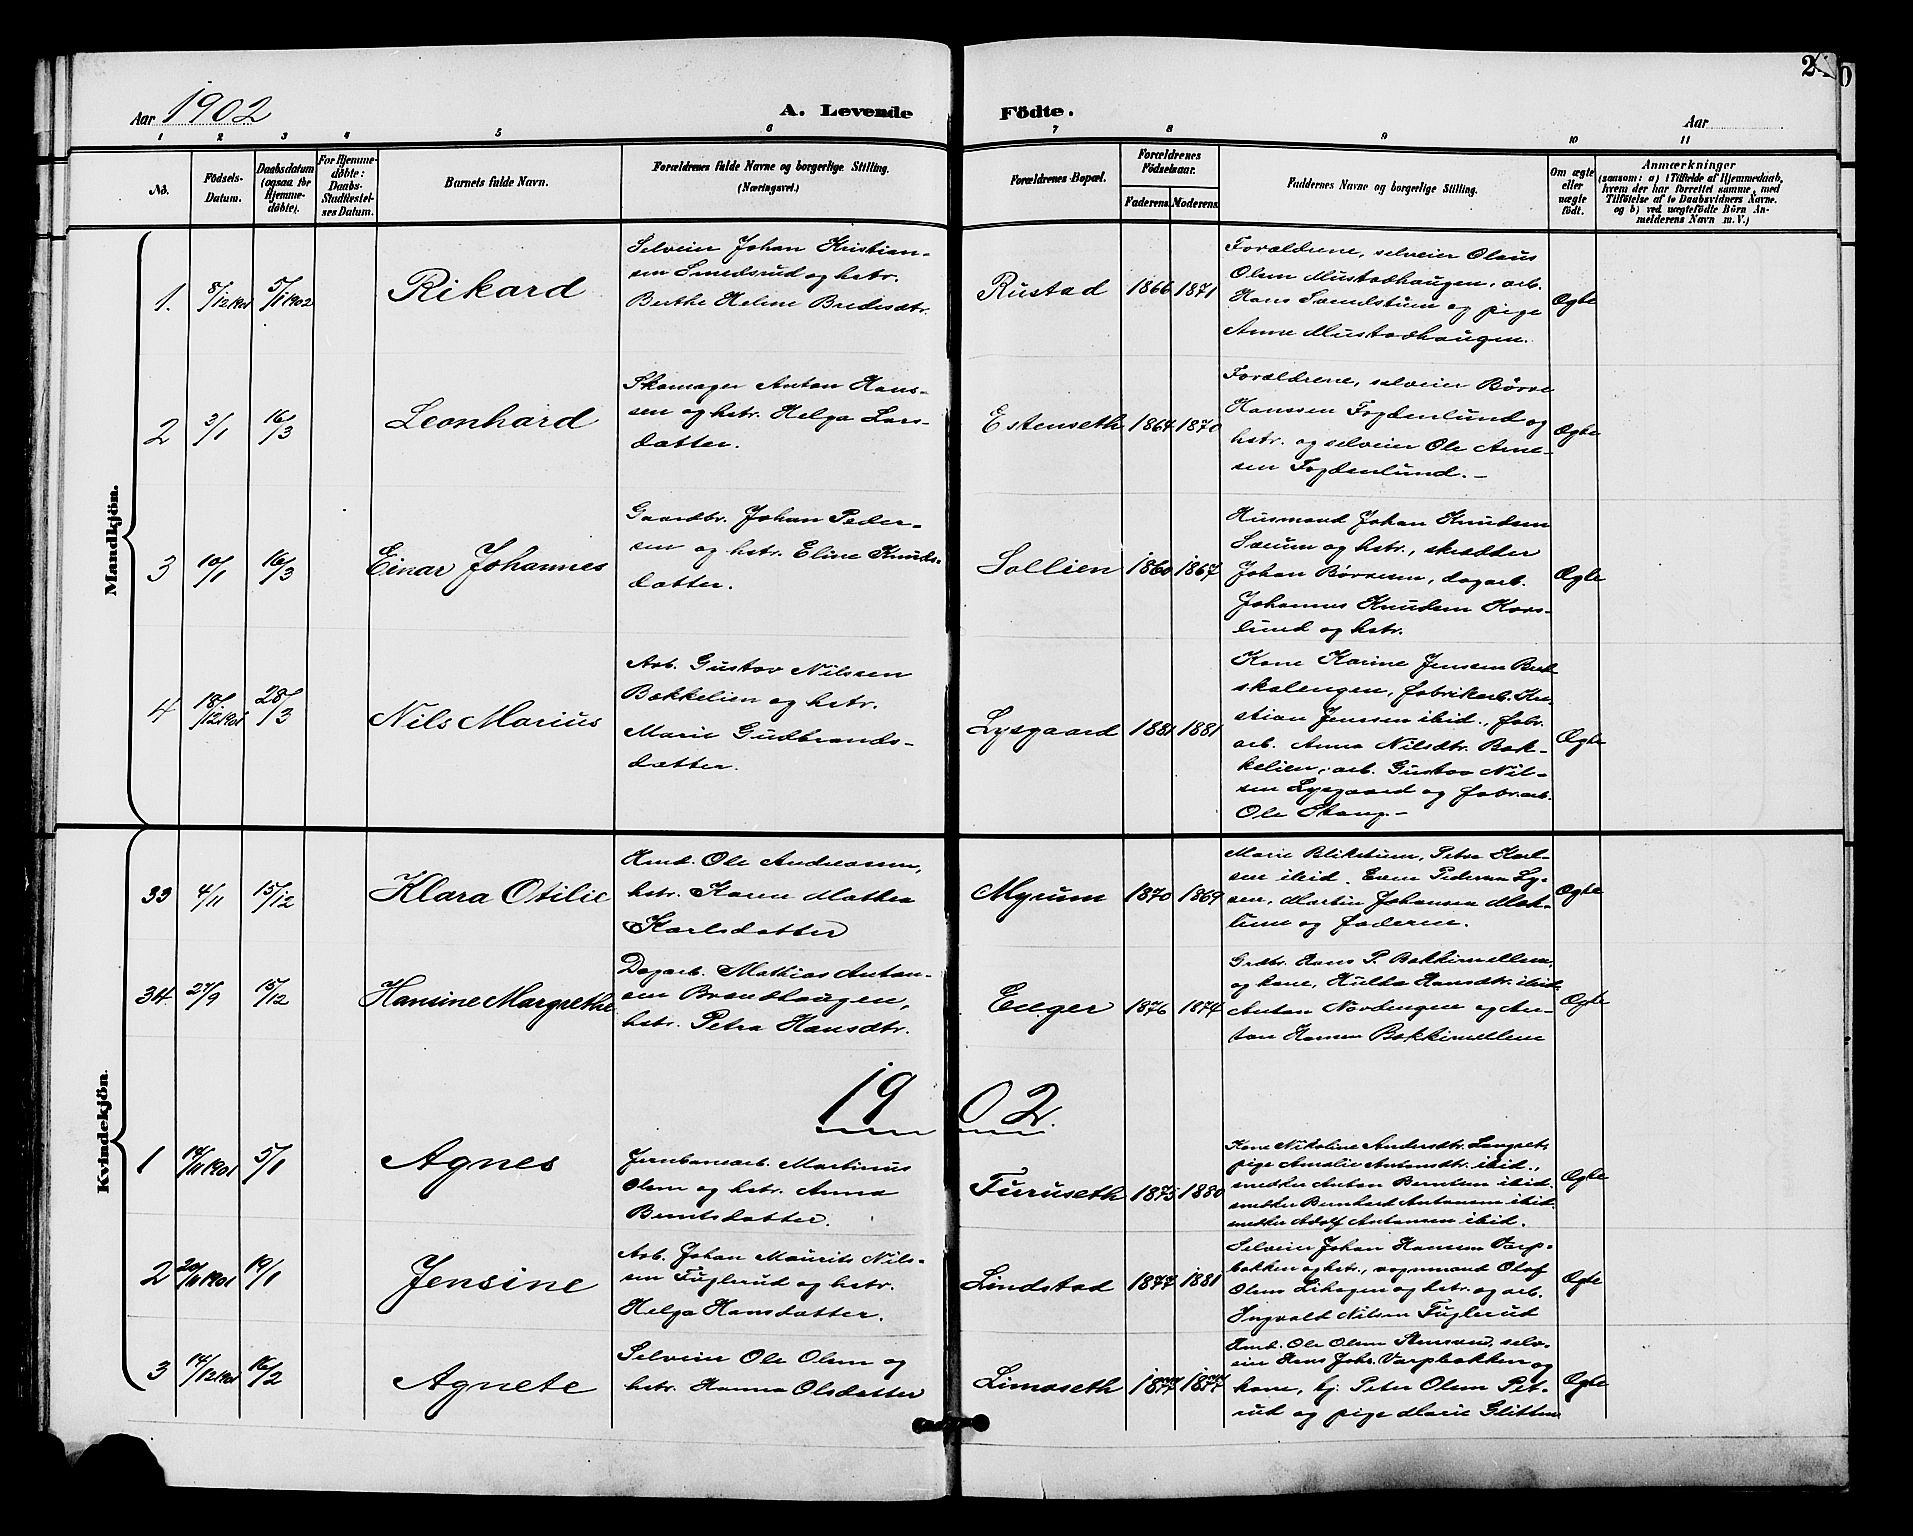 Aar 1902
A. Levende Födte.
Aar
2
1 2 3 4 5 6 7 8 9 10 11
No.
Födsels-Datum.
Daabsdatum (ogsaa for Hjemmedöbte).
For Hjemmedöbte: Daabs-Stadfestelses Datum.
Barnets fulde Navn.
Forældrenes fulde Navne og borgerlige Stilling. (Næringsvei.)
Forældrenes Bopæl.
Forældrenes Födselsaar.
Faderens. Moderens.
Faddernes Navne og borgerlige Stilling.
Om ægte eller uægte födt.
Anmærkninger
(saasom: a) i Tilfælde af Hjemmedaab,
hvem der har forrettet samme, med
Tilföielse af to Daabsvidners Navne.
og b) ved uægtefödte Börn An-
melderens Navn m. V.)
Mandkjön.
1. 8/12 1901 5/1 1902 Rikard
Selveier Johan Kristian-
sen Smedsrud og hstr.
Berthe Helene Bredesdtr.
Rustad 1866 1871
Forældrene, selveier Olaus
Olsen Mustadhaugen, arb.
Hans Sandstum og pige
Anne Mustadhaugen.
Ægte
2 3/1 16/3 Leonhard
Skomager Anton Hans-
sen og hstr. Helga Lars-
datter.
Estenseth 1864 1870
Forældrene, selveier Børre
Hanssen Fogdenlund og
hstr. og selveier Ole Arne-
sen Fogdenlund. -
Ægte
3 10/1 16/3 Einar Johannes
Gaardbr. Johan Peder-
sen og hstr. Eline Knuds-
datter.
Sollien 1860 1867
Husmand Johan Knudsen
Sæum og hstr., skrædder
Johan Børresen, dagarb.
Johannes Knudsen Kors-
lund og hstr.
Ægte
4 18/12 1901 28/3 Nils Marius
Arb. Gustav Nilssen
Bakkelien og hstr.
Marie Gudbrands-
datter.
Lysgaard 1881 1881
Kone Karine Jenssen Bek-
skalengen, fabrikarb. Kri-
stian Jenssen ibid., fabr.
arb. Anna Nilsdtr. Bak-
kelien, arb. Gustav Nil-
sen Lysgaard og fabr.arb.
Ole Skaug. -
Ægte
Kvindekjön.
33 4/11 15/12 Klara Otilie
Hmd. Ole Andreassen,
hstr. Karen Mathea
Karlsdatter
Myrum 1870 1869
Marie Blikstum, Petra Karl-
sen ibid. Even Pedersen Ly-
sen, Martin Johansen Mæh-
lum og faderen.
Ægte
34. 27/9 15/12 Hansine Margrethe
Dagarb. Mathias Anton-
sen Brandhaugen,
hstr. Petra Hansdtr.
Enger 1876 1874
Grdbr. Hans P. Bakkimellem,
og kone, Hulda Hansdtr. ibid.
Anton Nordengene og An-
ton Hansen Bakkimellem
Ægte
1902.
1 14/11 1901 5/1 Agnes
Jernbanearb. Martinus
Olsen og hstr. Anna
Berntsdatter.
Furuseth 1875 1880
Kone Nikoline Andersdtr. Langset,
pige Amalie Antonsdtr. ibid.,
snedker Anton Berntsen ibid.
snedker Bernhard Antonsen ibid.
snedker Adolf Antonsen ibid.
Ægte
2 20/11 1901 19/1 Jensine
Arb. Johan Maurits Nils-
sen Fuglerud og hstr.
Helga Hansdatter.
Lindstad 1877 1881
Selveier Johan Hansen Varp-
bakken og hstr., vognmand Olaf
Olsen Lihagen og hstr. og arb.
Ingvald Nilsen Fuglerud
Ægte
3 14/12 1901 16/2 Agnete
Selveier Ole Olsen og
hstr. Hanna Olsdatter
Limoseth 1877 1877
Hmd. Ole Olsen Stensven, selv-
eier Hans Johs. Varpbakken og
kone, kj. Peter Olsen Pet-
rud og pige Marie Glitten
Ægte